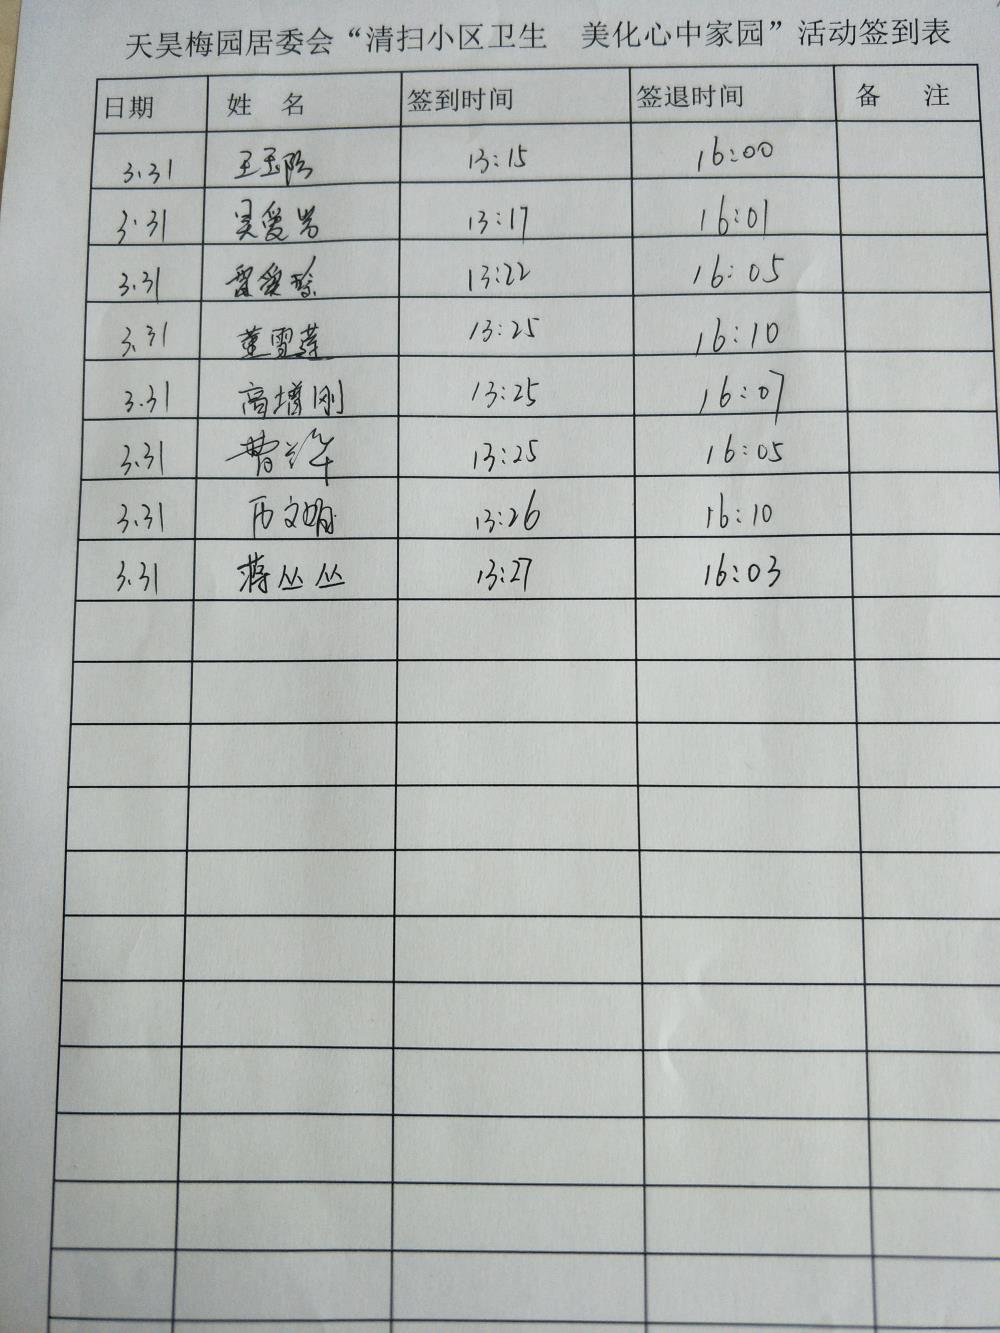 天昊梅园居委会“清扫小区卫生 美化心中家园”活动签到表
日期 姓 名 签到时间 签退时间 备 注
3.31 王玉 13:15 16:00
3.31 吴爱 13:17 16:01
3.31 13:22 16:05
3.31 董雪莲 13:25 16:10
3.31 高增刚 13:25 16:07
3.31 曹 13:25 16:05
3.31 文娟 13:26 16:10
3.31 蒋丛丛 13:27 16:03